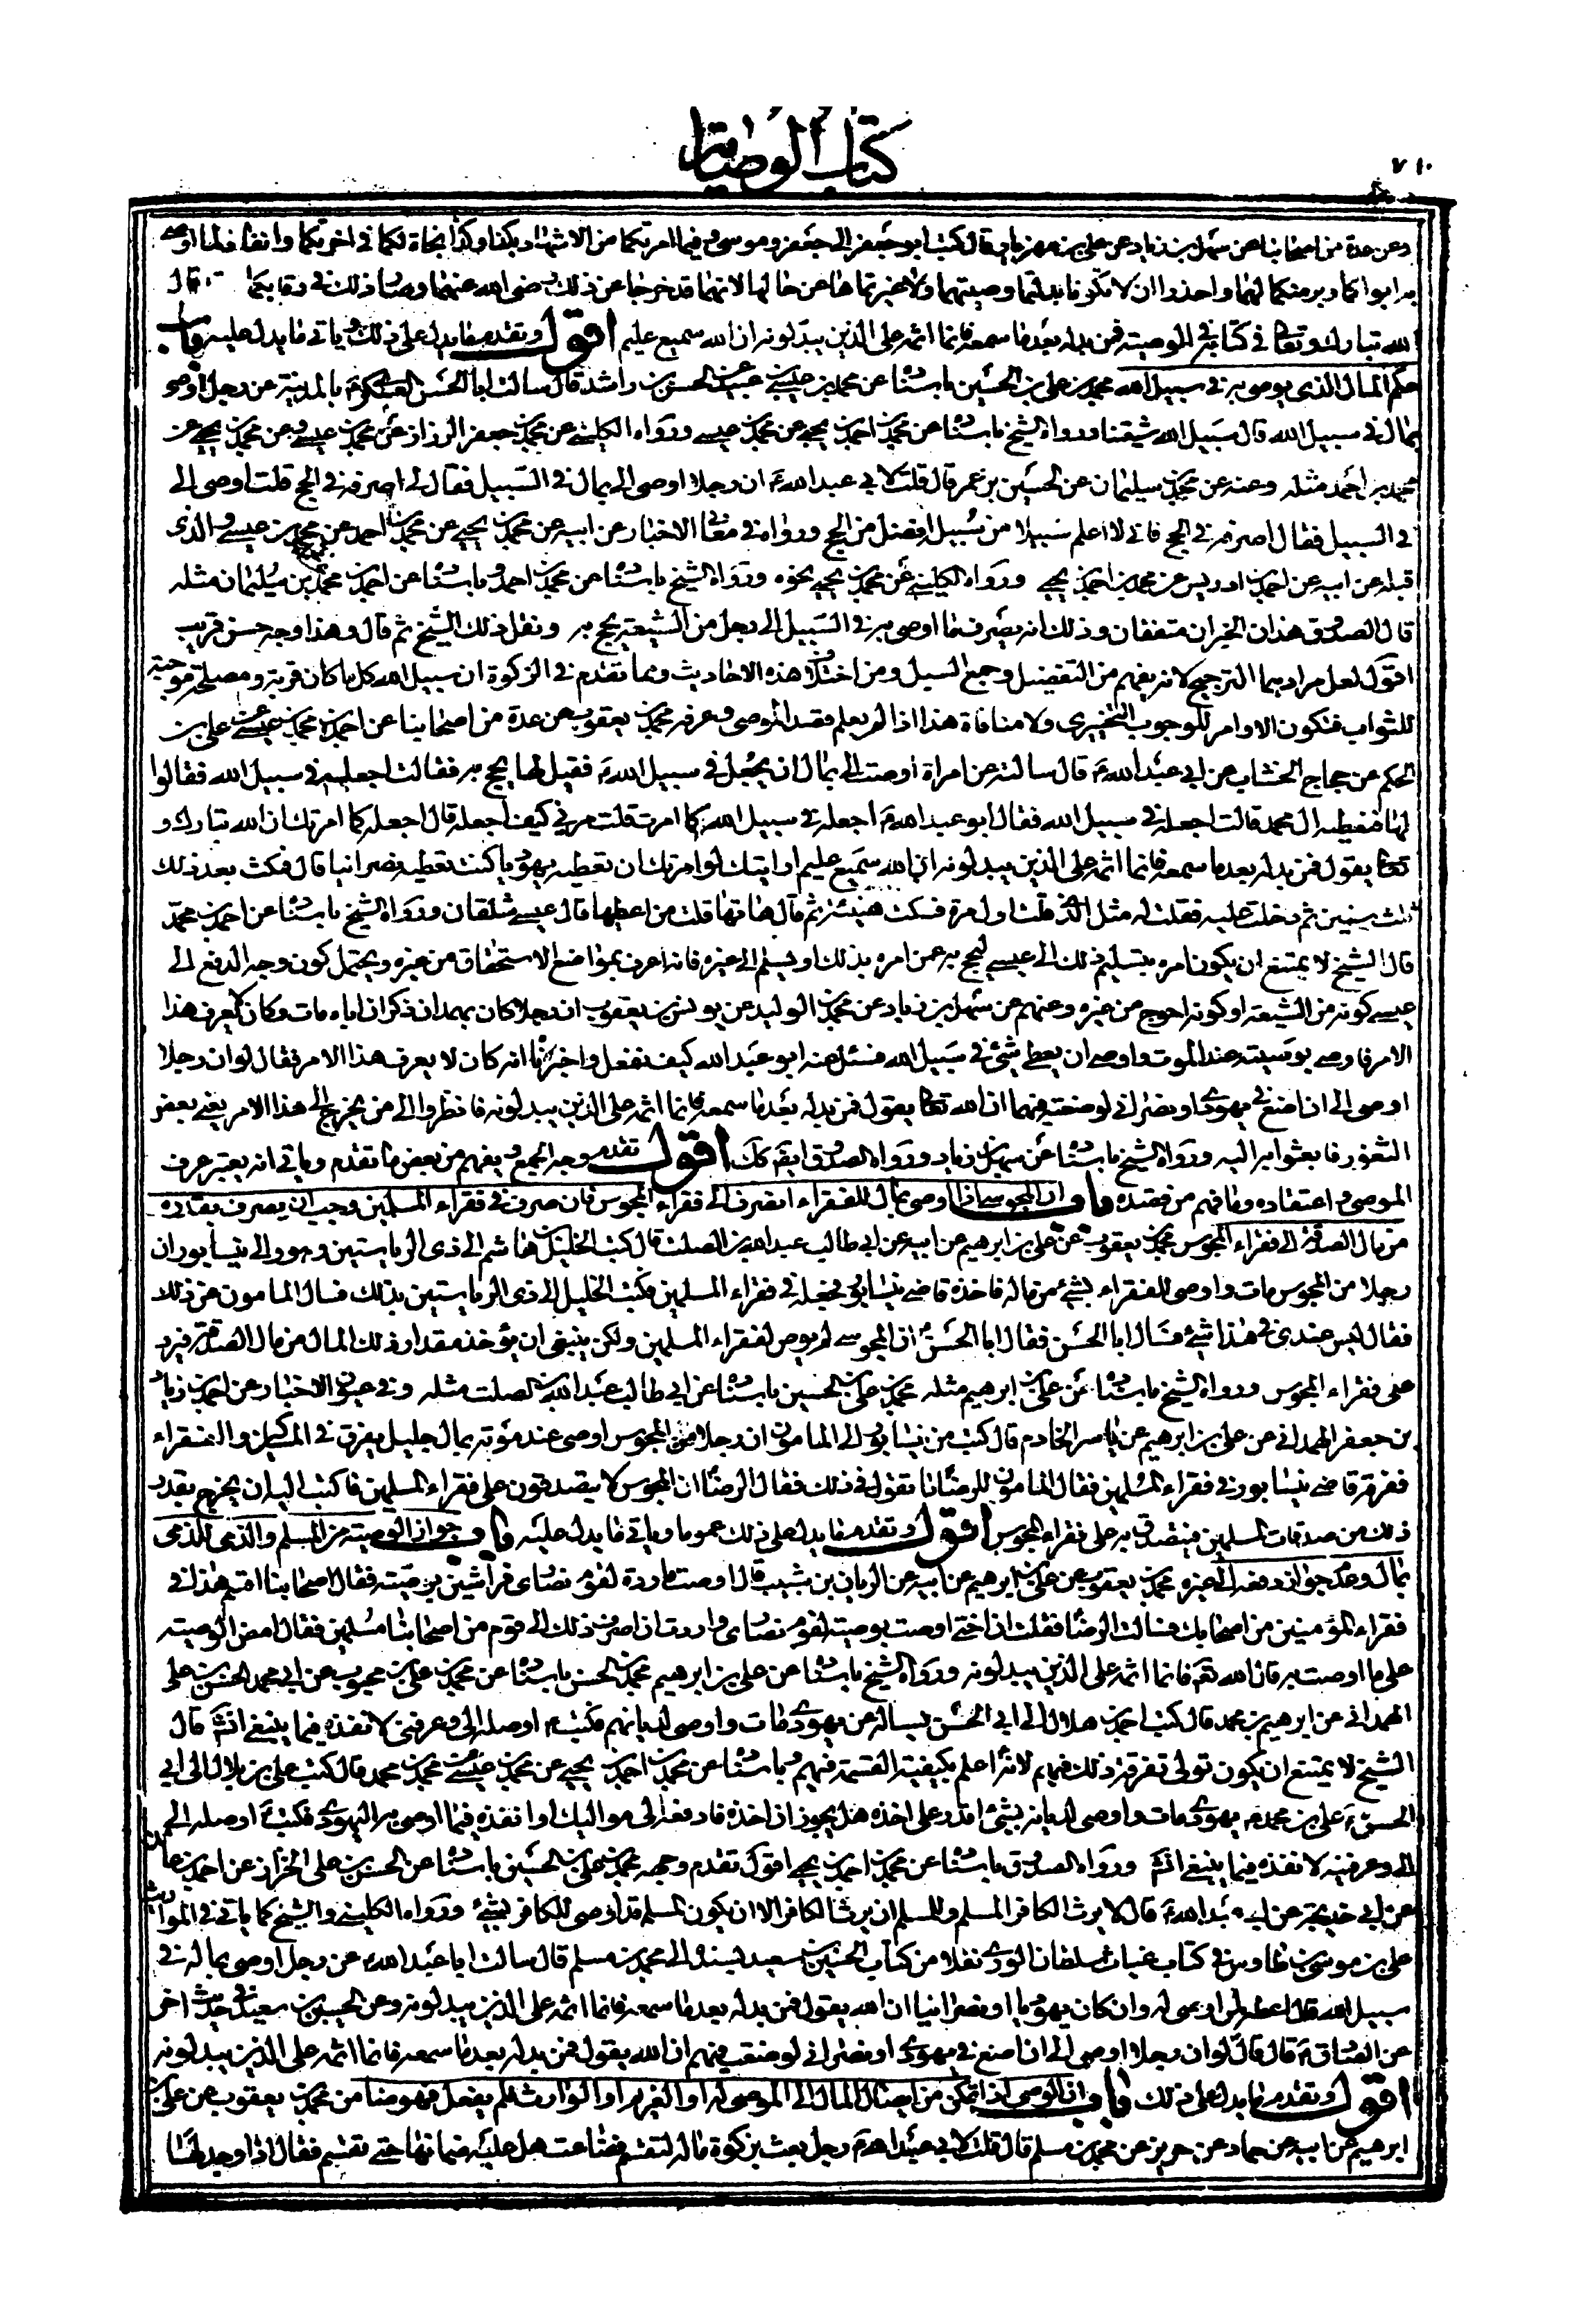 ٧١٠
كتاب الوصايا
وعن عدة من اصحابنا عن سهل بن زياد عن علي بن مهزيار قال كتب ابو جعفر الى جعفر وموسى وفيما امرتكما من الاشهاد بكذا وكذا نجاة لكما في اخرتكما وانفاذ لما اوصى
به ابواكما وبر منكما لهما واحذرا ان لا تكونا بدلتما وصيتهما ولا غيرتماها عن حالها لانهما قد خرجا عن ذلك رضى الله عنهما وصار ذلك في رقابكما وقد قال
الله تبارك وتعالى في كتابه في الوصية فمن بدله بعد ما سمعه فانما اثمه على الذين يبدلونه ان الله سميع عليم اقول وتقدم ما يدل على ذلك وياتي ما يدل عليه باب
حكم المال الذى يوصى به في سبيل الله محمد بن علي بن الحسين باسناده عن محمد بن عيسى بن عبيد عن الحسن بن راشد قال سالت ابا الحسن العسكري ع بالمدينة عن رجل اوصى
بمال في سبيل الله قال سبيل الله شيعتنا ورواه الشيخ باسناده عن محمد بن احمد بن يحيى عن محمد بن عيسى ورواه الكليني عن محمد بن جعفر الرزاز عن محمد بن عيسى وعن محمد بن يحيى عن
محمد بن احمد مثله وعنه عن محمد بن سليمان عن الحسين بن عمر قال قلت لابي عبد الله ع ان رجلا اوصى الى بمال في السبيل فقال لي اصرفه في الحج قلت اوصى الى
في السبيل فقال اصرفه في الحج فاني لا اعلم سبيلا من سبيله افضل من الحج ورواه في معاني الاخبار عن ابيه عن محمد بن يحيى عن محمد بن احمد عن محمد بن عيسى والذى
قبله عن ابيه عن احمد بن ادريس عن محمد بن احمد بن يحيى ورواه الكليني عن محمد بن يحيى نحوه ورواه الشيخ باسناده عن محمد بن احمد وباسناده عن احمد بن محمد عن محمد بن سليمان مثله
قال الصدوق هذان الخبران متفقان وذلك انه يصرف ما اوصى به في السبيل الى رجل من الشيعة يحج به ونقل ذلك الشيخ ثم قال وهذا وجه حسن قريب
اقول لعل مرادهما الترجيح لانه يفهم من التفضيل وجمع السبيل ومن اختلاف هذه الاحاديث ومما تقدم في الزكوة ان سبيل الله كل ما كان قربة ومصلحة موجبة
للثواب فتكون الاوامر للوجوب التخييرى ولا منافاة هذا اذا لم يعلم قصد الموصى وعرفه محمد بن يعقوب عن عدة من اصحابنا عن احمد بن محمد بن عيسى عن علي بن
الحكم عن حجاج الخشاب عن ابي عبد الله ع قال سالته عن امراة اوصت الى بمال ان يجعل في سبيل الله فقيل لها يحج به فقالت اجعليه في سبيل الله فقالوا
لها فنعطيه ال محمد قالت اجعله في سبيل الله فقال ابو عبد الله ع اجعله في سبيل الله كما امرت قلت مرني كيف اجعله قال اجعله كما امرتك ان الله تبارك و
تعالى يقول فمن بدله بعد ما سمعه فانما اثمه على الذين يبدلونه ان الله سميع عليم ارايتك لو امرتك ان تعطيه يهوديا كنت تعطيه نصرانيا قال فمكث بعد ذلك
ثلث سنين ثم دخلت عليه فقلت له مثل الذى قلت اول مرة فسكت هنيئة ثم قال هاتها قلت من اعطيها قال عيسى شلقان ورواه الشيخ باسناده عن احمد بن محمد
قال الشيخ لا يمتنع ان يكون امره بتسليم ذلك الى عيسى ليحج به عمن امره بذلك او يسلم الى غيره فانه اعرف بمواضع الاستحقاق من غيره ويحتمل كون وجه الدفع الى
عيسى كونه من الشيعة او كونه احوج من غيره وعنهم عن سهل بن زياد عن محمد بن الوليد عن يونس بن يعقوب ان رجلا كان بهمدان ذكر ان اباه مات وكان لا يعرف هذا
الامر فاوصى بوصيته عند الموت واوصى ان يعطى شئ في سبيل الله فسئل عنه ابو عبد الله كيف نفعل واخبرناه انه كان لا يعرف هذا الامر فقال لو ان رجلا
اوصى الى ان اضع في يهودى او نصراني لوضعته فيهما ان الله تعالى يقول فمن بدله بعد ما سمعه فانما اثمه على الذين يبدلونه فانظروا الى من يخرج الى هذا الامر يعنى بعض
الثغور فابعثوا به اليه ورواه الشيخ باسناده عن سهل بن زياد ورواه الصدوق ايضا كك اقول تقدم وجه الجمع ويفهم من بعض ما تقدم وياتي انه يعتبر عرف
الموصى و اعتقاده وما فهم من قصده باب ان المجوسى اذا اوصى بمال للفقراء انصرف الى فقراء المجوس فان صرف في فقراء المسلمين وجب ان يصرف بقدره
من مال الصدقة الى فقراء المجوس محمد بن يعقوب عن علي بن ابرهيم عن ابيه عن ابي طالب عبد الله بن الصلت قال كتب الخليل بن هاشم الى ذى الرياستين وهو والى نيسابور ان
رجلا من المجوس مات واوصى للفقراء بشئ من ماله فاخذه قاضى نيسابور فجعله في فقراء المسلمين فكتب الخليل الى ذى الرياستين بذلك فسال المامون عن ذلك
فقال ليس عندى في هذا شئ فسال ابا الحسن فقال ابا الحسن ع ان المجوسى لم يوص لفقراء المسلمين ولكن ينبغى ان يؤخذ مقدار ذلك المال من مال الصدقة فيرد
على فقراء المجوس ورواه الشيخ باسناده عن علي بن ابرهيم مثله محمد بن علي بن الحسين باسناده عن ابي طالب عبد الله بن الصلت مثله وفي عيون الاخبار عن احمد بن زياد
بن جعفر الهمداني عن علي بن ابرهيم عن ياسر الخادم قال كتب من نيسابور الى المامون ان رجلا من المجوس اوصى عند موته بمال جليل يفرق في المساكين والفقراء
ففرقه قاضى نيسابور في فقراء المسلمين فقال المامون للرضا ع ما تقول في ذلك فقال الرضا ع ان المجوس لا يتصدقون على فقراء المسلمين فاكتب اليه ان يخرج بقدر
ذلك من صدقات المسلمين فيتصدق به على فقراء المجوس اقول وتقدم ما يدل على ذلك عموما وياتي ما يدل عليه باب جواز الوصية من المسلم والذمى للذمى
بمال وعدم جواز دفعه الى غيره محمد بن يعقوب عن علي بن ابرهيم عن ابيه عن الريان بن شبيب قال اوصت ماردة لقوم نصارى فراشين بوصية فقال اصحابنا اقسم هذا في
فقراء المؤمنين من اصحابك فسالت الرضا ع فقلت ان اختى اوصت بوصية لقوم نصارى واردت ان اصرف ذلك الى قوم من اصحابنا مسلمين فقال امض الوصية
على ما اوصت به قال الله تعالى فانما اثمه على الذين يبدلونه ورواه الشيخ باسناده عن علي بن ابرهيم محمد بن الحسن باسناده عن محمد بن علي بن محبوب عن ابي محمد الحسن بن علي
الهمداني عن ابرهيم بن محمد قال كتب احمد بن هلال الى ابي الحسن ع يساله عن يهودى مات واوصى لديانهم فكتب ع اوصله الى وعرفنى لانفذه فيما ينبغى انش قال
الشيخ لا يمتنع ان يكون تولى تفرقة ذلك فيهم لانه ع اعلم بكيفية القسمة فيهم وباسناده عن محمد بن احمد بن يحيى عن محمد بن عيسى عن محمد بن محمد قال كتب علي بن بلال الى ابي
الحسن ع علي بن محمد ع يهودى مات واوصى لديانه بشئ اقدر على اخذه هل يجوز ان اخذه فادفعه الى مواليك او انفذه فيما اوصى به اليهودى فكتب ع اوصله الى
الى وعرفنيه لانفذه فيما ينبغى انش ورواه الصدوق باسناده عن محمد بن احمد بن يحيى اقول تقدم وجهه محمد بن علي بن الحسين باسناده عن الحسن بن علي الخزاز عن احمد بن عائذ
عن ابي خديجة عن ابي عبد الله ع قال لا يرث الكافر المسلم وللمسلم ان يرث الكافر الا ان يكون المسلم قد اوصى للكافر بشئ ورواه الكليني والشيخ كما ياتي في المواريث
علي بن موسى بن طاوس في كتاب غياث سلطان الورى نقلا من كتاب الحسين بن سعيد بسنده الى محمد بن مسلم قال سالت ابا عبد الله ع عن رجل اوصى بماله في
سبيل الله قال اعطه لمن اوصى له وان كان يهوديا او نصرانيا ان الله يقول فمن بدله بعد ما سمعه فانما اثمه على الذين يبدلونه وعن الحسين بن سعيد في حديث اخر
عن الصادق ع قال قال لو ان رجلا اوصى الى ان اضع في يهودى او نصراني لوضعت فيهم ان الله يقول فمن بدله بعد ما سمعه فانما اثمه على الذين يبدلونه
اقول وتقدم ما يدل على ذلك باب ان الوصى اذا تمكن من ايصال المال الى الموصى له او الغريم او الوارث فلم يفعل فهو ضامن محمد بن يعقوب عن علي بن
ابرهيم عن ابيه عن حماد عن حريز عن محمد بن مسلم قال قلت لابي عبد الله ع رجل بعث بزكوة ماله لتقسم فضاعت هل عليه ضمانها حتى تقسم فقال اذا وجد لها